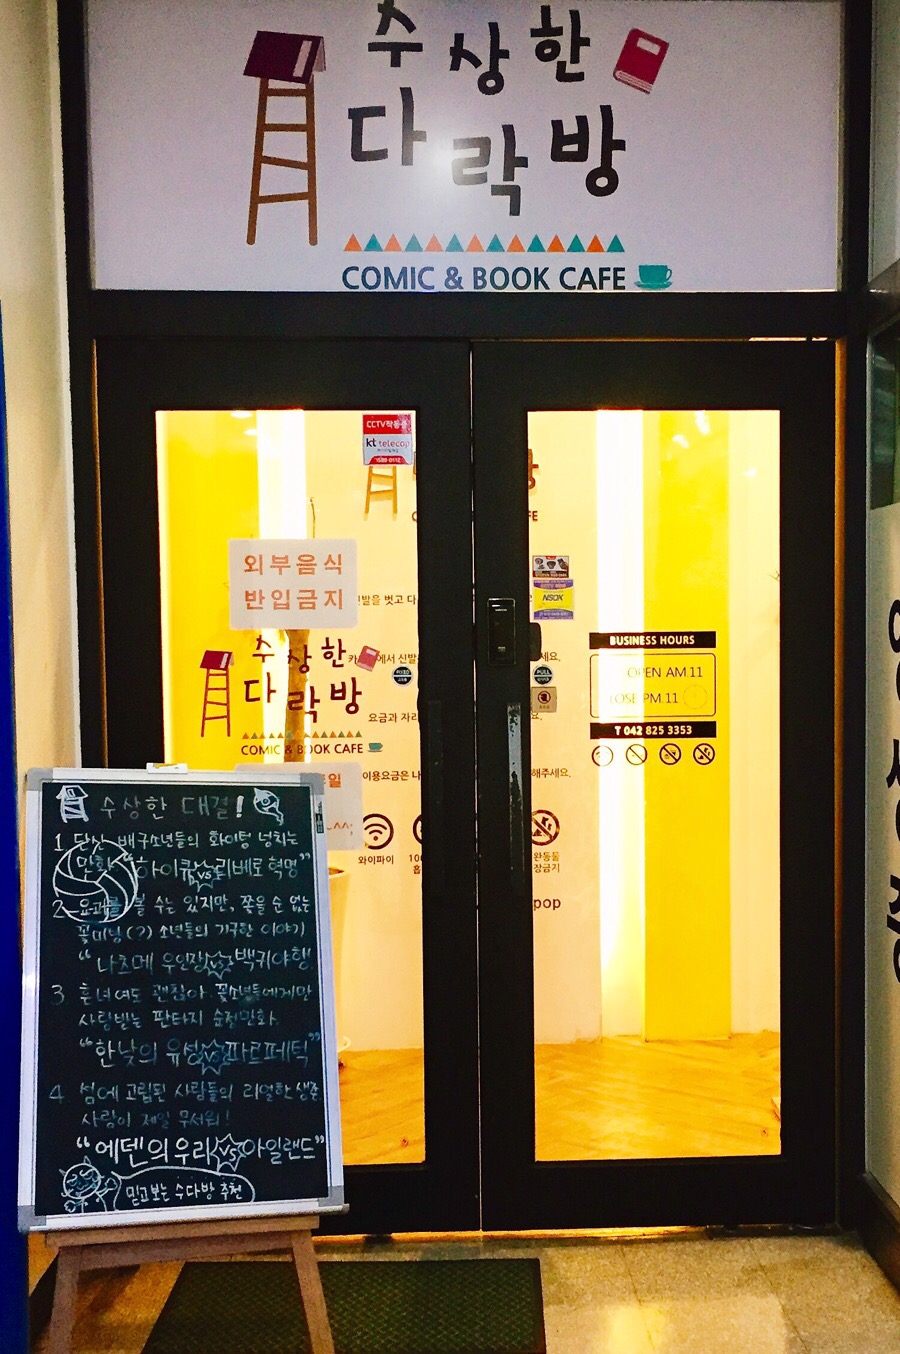 수상한
다락방
COMIC & BOOK CAFE
CCTV작동중
kt telecop
1588-0112
외부음식
반입금지
수상한
다락방
COMIC & BOOK CAFE
신발을 벗고
에서 신발
세요.
요금과 자리
이용요금은
해주세요.
와이파이
NSOK
PULL
BUSINESS HOURS
OPEN AM 11
LOSE PM 11
T 042 825 3353
수상한 대결!
1. 단상 배구소년들의 화이팅 넘치는
만화 "하이큐 vs 리베로 혁명"
2. 요괴를 볼 수는 있지만, 쫓을 순 없는
꽃미남(?) 소년들의 기구한 이야기
"나츠메 우인장 vs 백귀야행
3 훈녀여도 괜찮아. 꽃소년들에게만
사랑받는 판타지 순정만화.
"한낮의 유성 vs 파르페틱"
4 섬에 고립된 사람들의 리얼한 생존
사람이 제일 무서워!
"에덴의 우리 vs 아일랜드"
믿고보는 수다방 추천